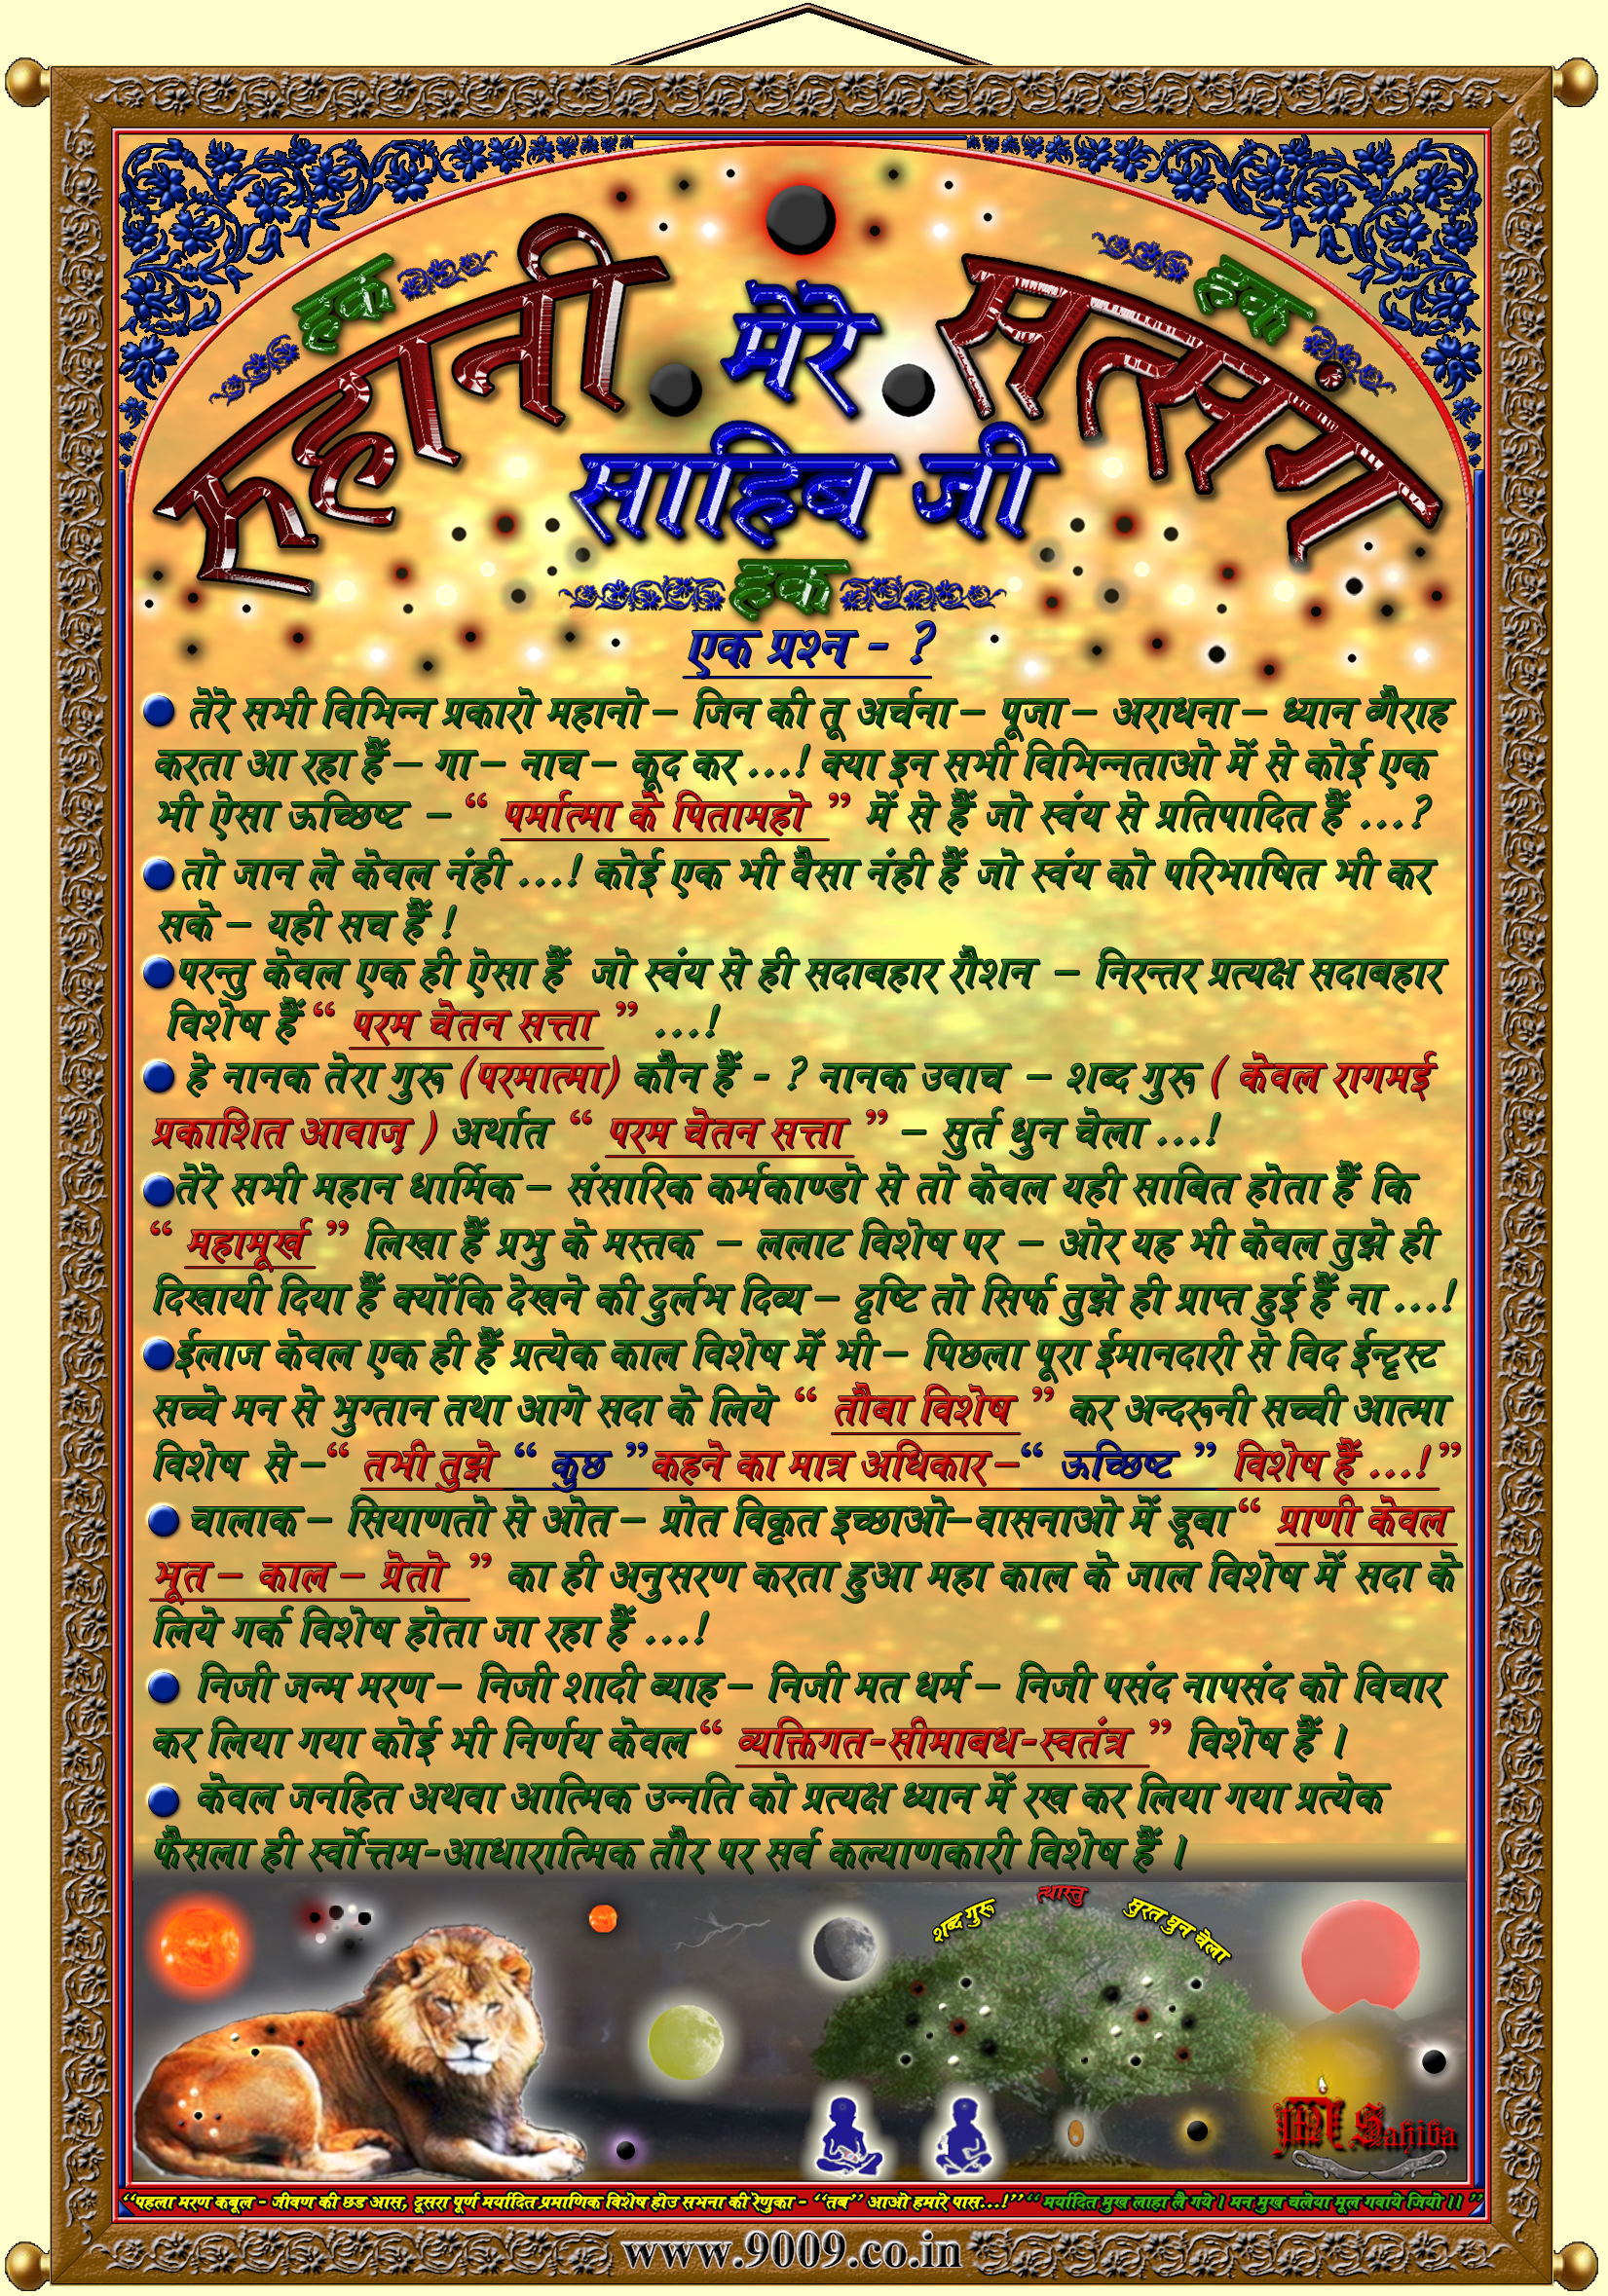 हक
हक
रुहानी
सत्संग
मेरे
साहिब जी
हक
एक प्रश्न - ?
तेरे सभी विभिन्न प्रकारो महानो – जिन की तू अर्चना – पूजा – अराधना – ध्यान वगैराह
करता आ रहा हैं – गा – नाच – कूद कर ...! क्या इन सभी विभिन्नताओ में से कोई एक
भी ऐसा ऊच्छिष्ट – “ पर्मात्मा के पितामहो ” में से हैं जो स्वंय से प्रतिपादित हैं ...?
तो जान ले केवल नंही ...! कोई एक भी वैसा नंही हैं जो स्वंय को परिभाषित भी कर
सके – यही सच हैं !
परन्तु केवल एक ही ऐसा हैं जो स्वंय से ही सदाबहार रौशन – निरन्तर प्रत्यक्ष सदाबहार
विशेष हैं “ परम चेतन सत्ता ” ...!
हे नानक तेरा गुरू (परमात्मा) कौन हैं - ? नानक उवाच – शब्द गुरू ( केवल रागमई
प्रकाशित आवाज़ ) अर्थात “ परम चेतन सत्ता ” – सुर्त धुन चेला ...!
तेरे सभी महान धार्मिक – संसारिक कर्मकाण्डो से तो केवल यही साबित होता हैं कि
“ महामूर्ख ” लिखा हैं प्रभु के मस्तक – ललाट विशेष पर – ओर यह भी केवल तुझे ही
दिखायी दिया हैं क्योंकि देखने की दुर्लभ दिव्य – दृष्टि तो सिर्फ तुझे ही प्राप्त हुई हैं ना ...!
ईलाज केवल एक ही हैं प्रत्येक काल विशेष में भी – पिछला पूरा ईमानदारी से विद ईन्ट्रस्ट
सच्चे मन से भुग्तान तथा आगे सदा के लिये “ तौबा विशेष ” कर अन्दरूनी सच्ची आत्मा
विशेष से – “ तभी तुझे “ कुछ ” कहने का मात्र अधिकार – “ ऊच्छिष्ट ” विशेष हैं ...! ”
चालाक – सियाणतो से ओत – प्रोत विकृत इच्छाओ – वासनाओ में डूबा “ प्राणी केवल
भूत – काल – प्रेतो ” का ही अनुसरण करता हुआ महा काल के जाल विशेष में सदा के
लिये गर्क विशेष होता जा रहा हैं ...!
निजी जन्म मरण – निजी शादी ब्याह – निजी मत धर्म – निजी पसंद नापसंद को विचार
कर लिया गया कोई भी निर्णय केवल “ व्यक्तिगत-सीमाबध-स्वतंत्र ” विशेष हैं ।
केवल जनहित अथवा आत्मिक उन्नति को प्रत्यक्ष ध्यान में रख कर लिया गया प्रत्येक
फैसला ही र्स्वोत्तम-आधारात्मिक तौर पर सर्व कल्याणकारी विशेष हैं ।
शब्द गुरू
त्थास्तु
सुरत धुन चेला
Sahiba
“पहला मरण कबूल - जीवण की छड आस, दूसरा पूर्ण मर्यादित प्रमाणिक विशेष होउ सभना की रेणुका - “तब” आओ हमारे पास...!” “ मर्यादित मुख लाहा लै गये । मन मुख चलेया मूल गवाये जियो ।। ”
www.9009.co.in